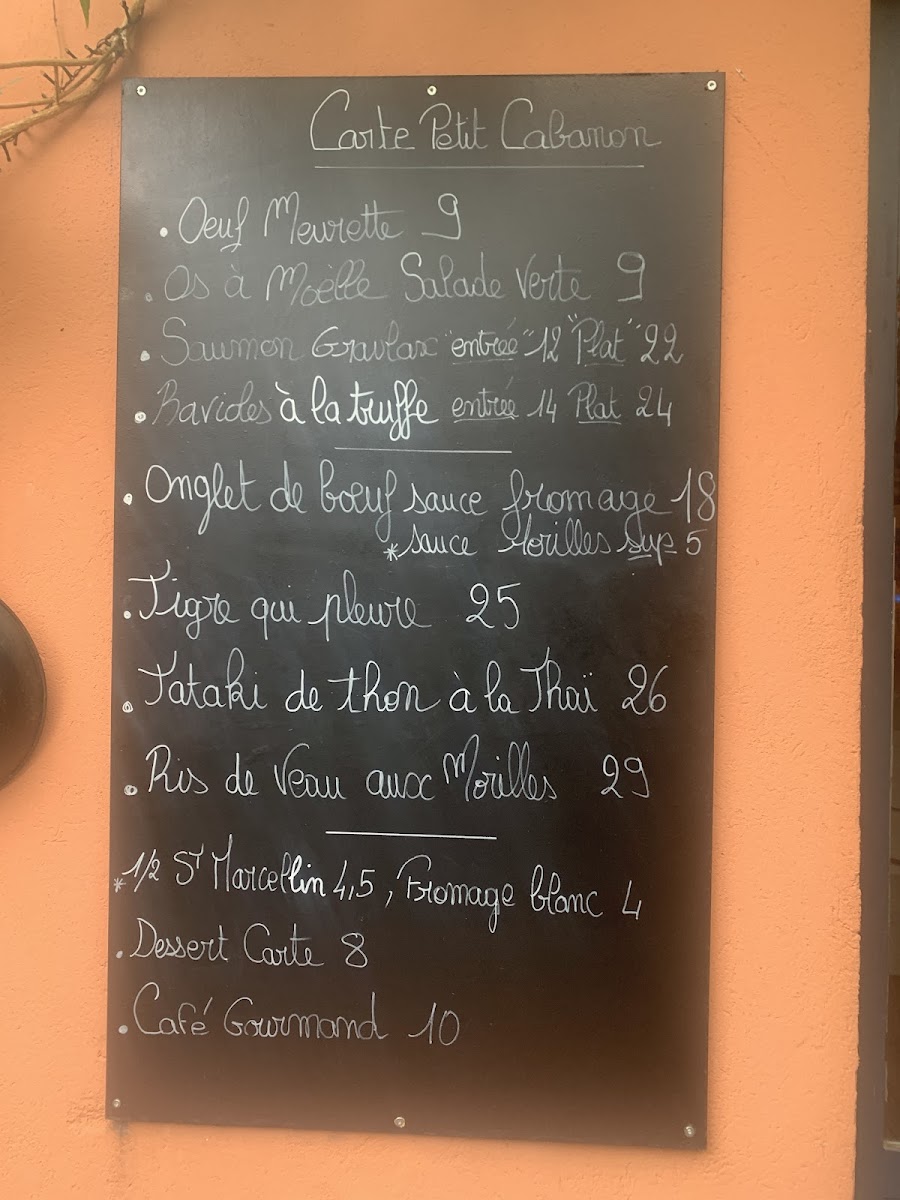 Carte Petit Cabanon
. Oeuf Meurette 9
. Os à Moèlle Salade Verte 9
. Saumon Gravlax "entrée" 12 "Plat" 22
. Ravioles à la truffe entrée 14 Plat 24
. Onglet de bœuf sauce fromage 18
* sauce Morilles sup 5
. Tigre qui pleure 25
. Tataki de thon à la Thaï 26
. Ris de Veau aux Morilles 29
* 1/2 St Marcellin 4,5 , Fromage blanc 4
. Dessert Carte 8
. Café Gourmand 10